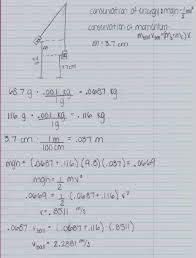 conservation of energy → mgh = ½mv²
conservation of momentum →
m_ball v_ball = (m₁+m₂) v
Δh = 3.7 cm
3.7 cm
68.7 g · .001 kg / 1g = .0687 kg
116 g · .001 kg / 1g = .116 kg
3.7 cm · 1 m / 100 cm = .037 m
mgh = (.0687 + .116)(9.8)(.037) = .0669
mgh = ½ mv²
.0669 = ½ (.0687 + .116) v²
v = .8511 m/s
.0687 v_ball = (.0687 + .116) · .8511
v_ball = 2.2881 m/s